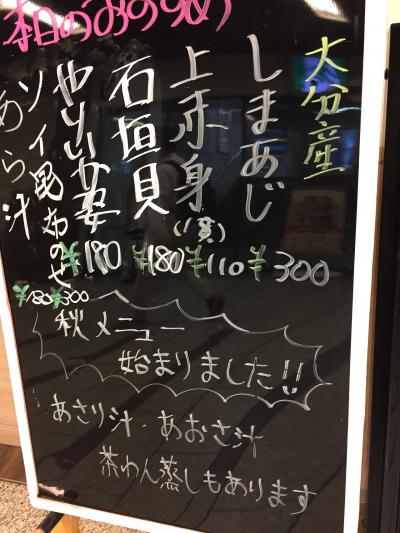 本日のおすすめ
大分産
しまあじ
¥300
上赤身(1貫)
¥110
石垣貝
¥180
やりいか姿
¥180
ソイ昆布のせ
¥300
あら汁
¥180
秋メニュー
始まりました!!
あさり汁・あおさ汁
茶わん蒸しもあります